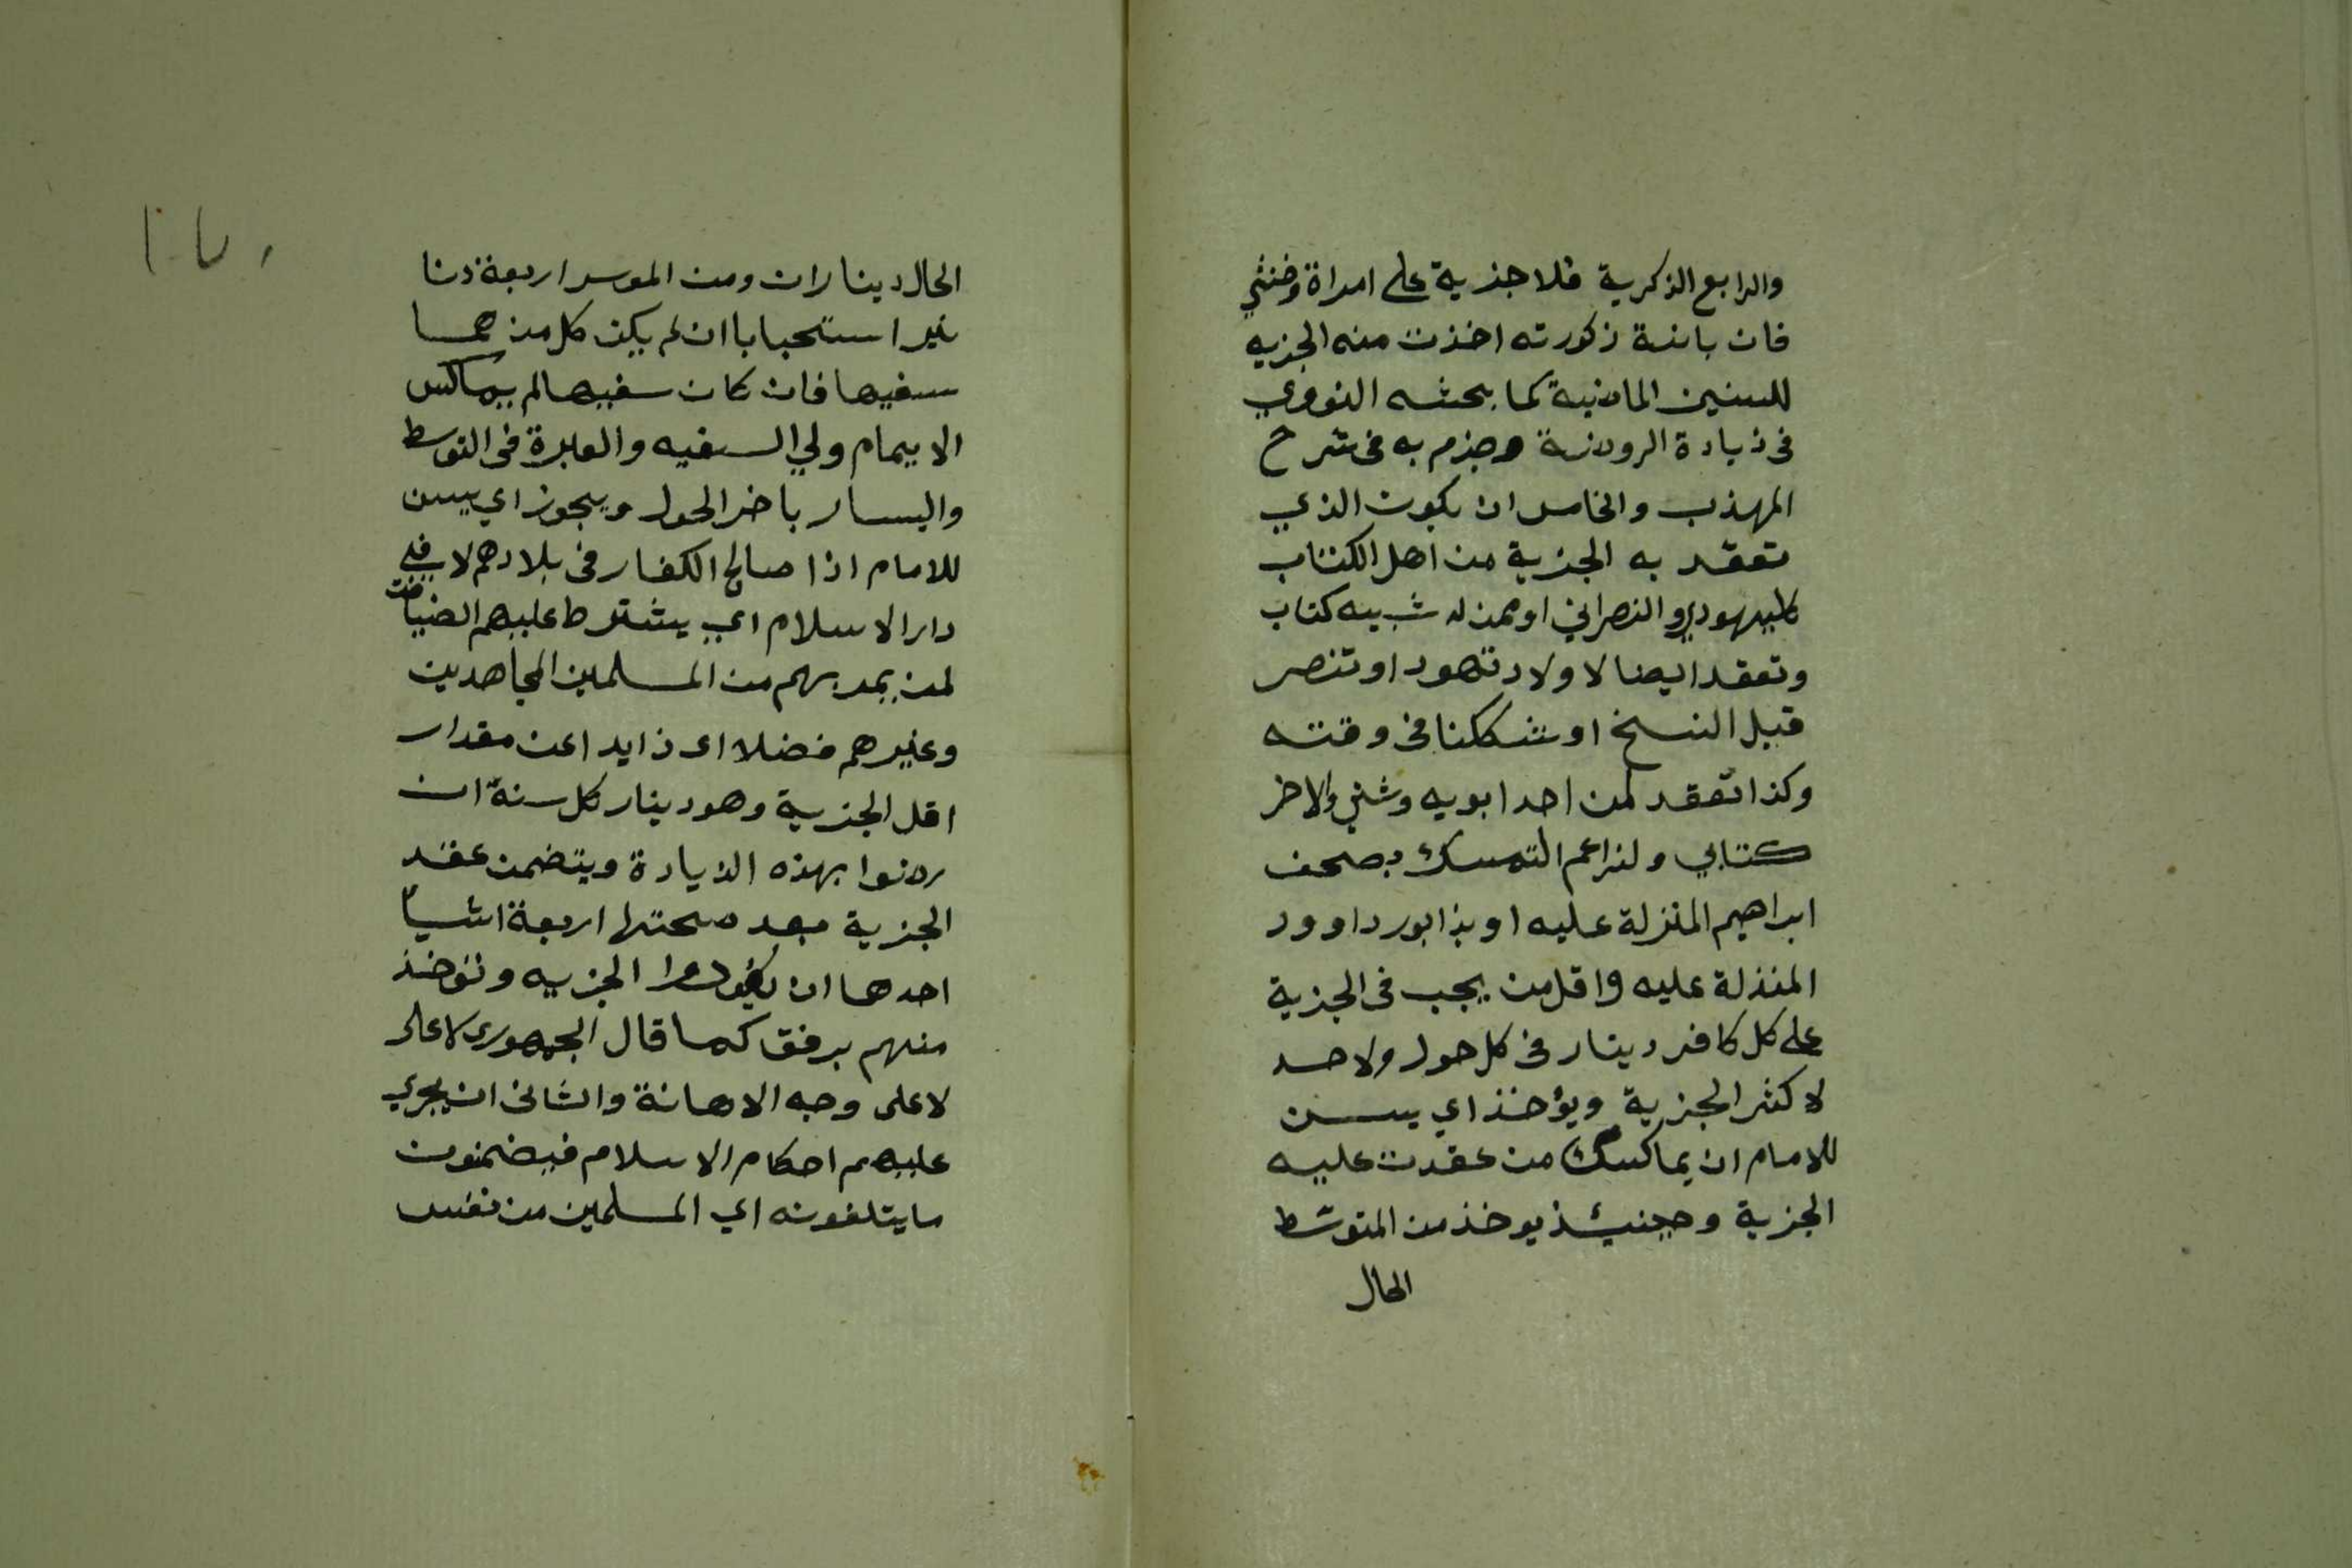 والرابع الذكرية فلا جزية على امراة وخنثي
فان بانة ذكورته اخذت منه الجزيه
للسنين الماضية كما بحثه النووي
في زيادة الروضة وجزم به في شرح
المهذب والخامس ان يكون الذي
تعقد به الجزية من اهل الكتاب
كاليهودي والنصراني او ممن له شبيه كتاب
وتعقد ايضا لاولاد تهود او تنصر
قبل النسخ او شككنا في وقته
وكذا تعقد لمن احد ابويه وشني والاخر
كتابي ولزاعم التمسك بصحف
ابراهيم المنزلة عليه او بزابور داوود
المنزلة عليه واقل من يجب في الجزية
على كل كافر دينار في كل حول ولا حد
لاكثر الجزية ويؤخذ اي يسن
للامام ان يماكس من عقدت عليه
الجزية وحينئذ يوخذ من المتوسط
الحال
الحال ديناران ومن الموسر اربعة دنا
نير استحبابا ان لم يكن كل من هما
سفيها فان كان سفيها لم يماكس
الايمام ولي السفيه والعبرة في التوسط
واليسار باخر الحول ويجوز اي يسن
للامام اذا صالح الكفار في بلادهم لا في
دار الاسلام اي يشترط عليهم الضيافت
لمن يمر بهم من المسلمين المجاهدين
وغيرهم فضلا اى زايدا عن مقدار
اقل الجزية وهو دينار كل سنة ان
رضوا بهذه الزيادة ويتضمن عقد
الجزية بعد صحتها اربعة اشيآ
احدها ان يؤدوا الجزيه وتوخذ
منهم برفق كما قال الجمهورى لا على
لا على وجه الاهانة والثانى ان يجري
عليهم احكام الاسلام فيضمنون
ما يتلفونه اي المسلمين من نفس